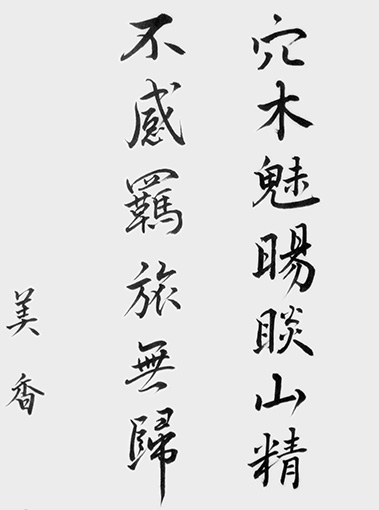 穴木魅睗睒山精
不感羈旅無歸
美香